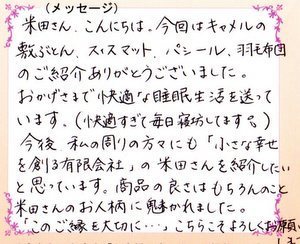 （メッセージ）
米田さん、こんにちは。今回はキャメルの
敷ぶとん、スイスマット、パシール、羽毛布団
のご紹介ありがとうございました。
おかげさまで快適な睡眠生活を送って
います。（快適すぎて毎日寝坊してます）
今後、私の周りの方々にも「小さな幸せ
を創る有限会社」の米田さんを紹介したい
と思っています。商品の良さはもちろんのこと
米田さんのお人柄に魅かれました。
「このご縁を大切に…」こちらこそよろしくお願